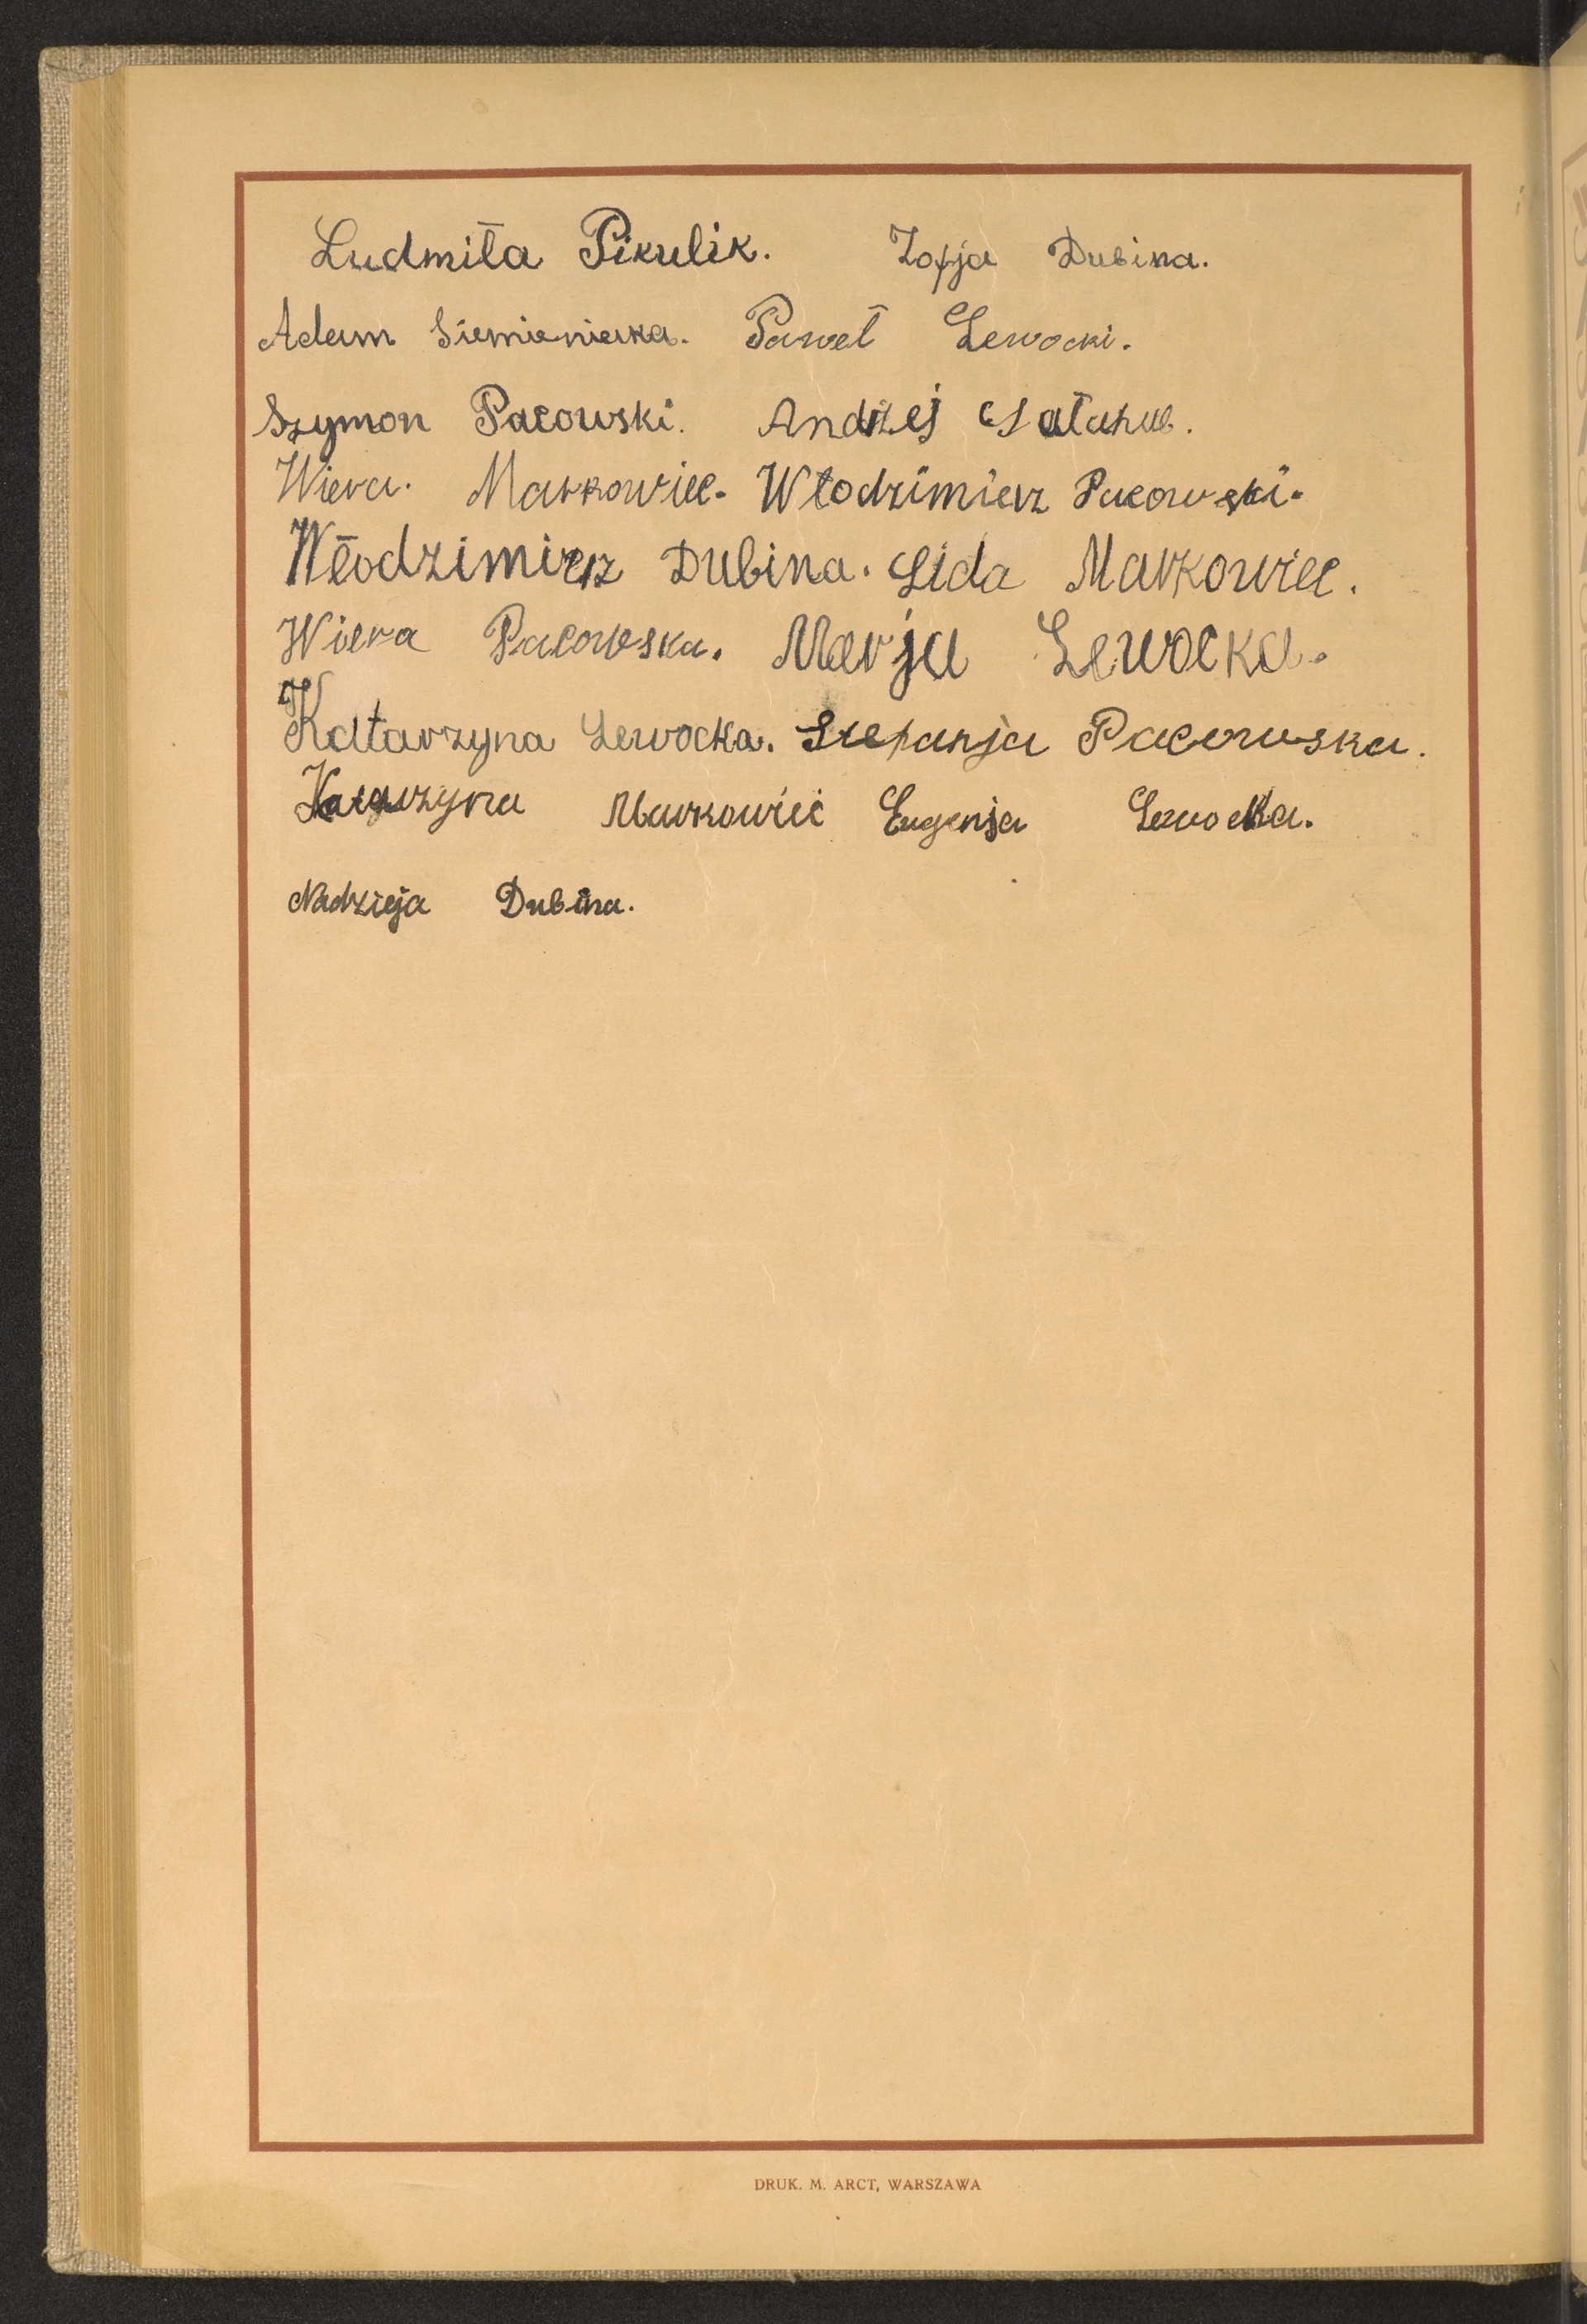 Ludmiła Pikulik. Zofja Dubina.
Adam Siemieniaka. Paweł Lewocki.
Szymon Pacowski. Andrzej
Wiera. Markowiec. Włodzimierz Pacowski.
Włodzimierz Dubina. Lida Markowiec.
Wiera Pacowska. Marja Lewocka.
Katarzyna Lewocka. Stefanja Pacowska.
Katarzyna Markowiec Eugenja Lewocka.
Nadzieja Dubina.
DRUK. M. ARCT, WARSZAWA